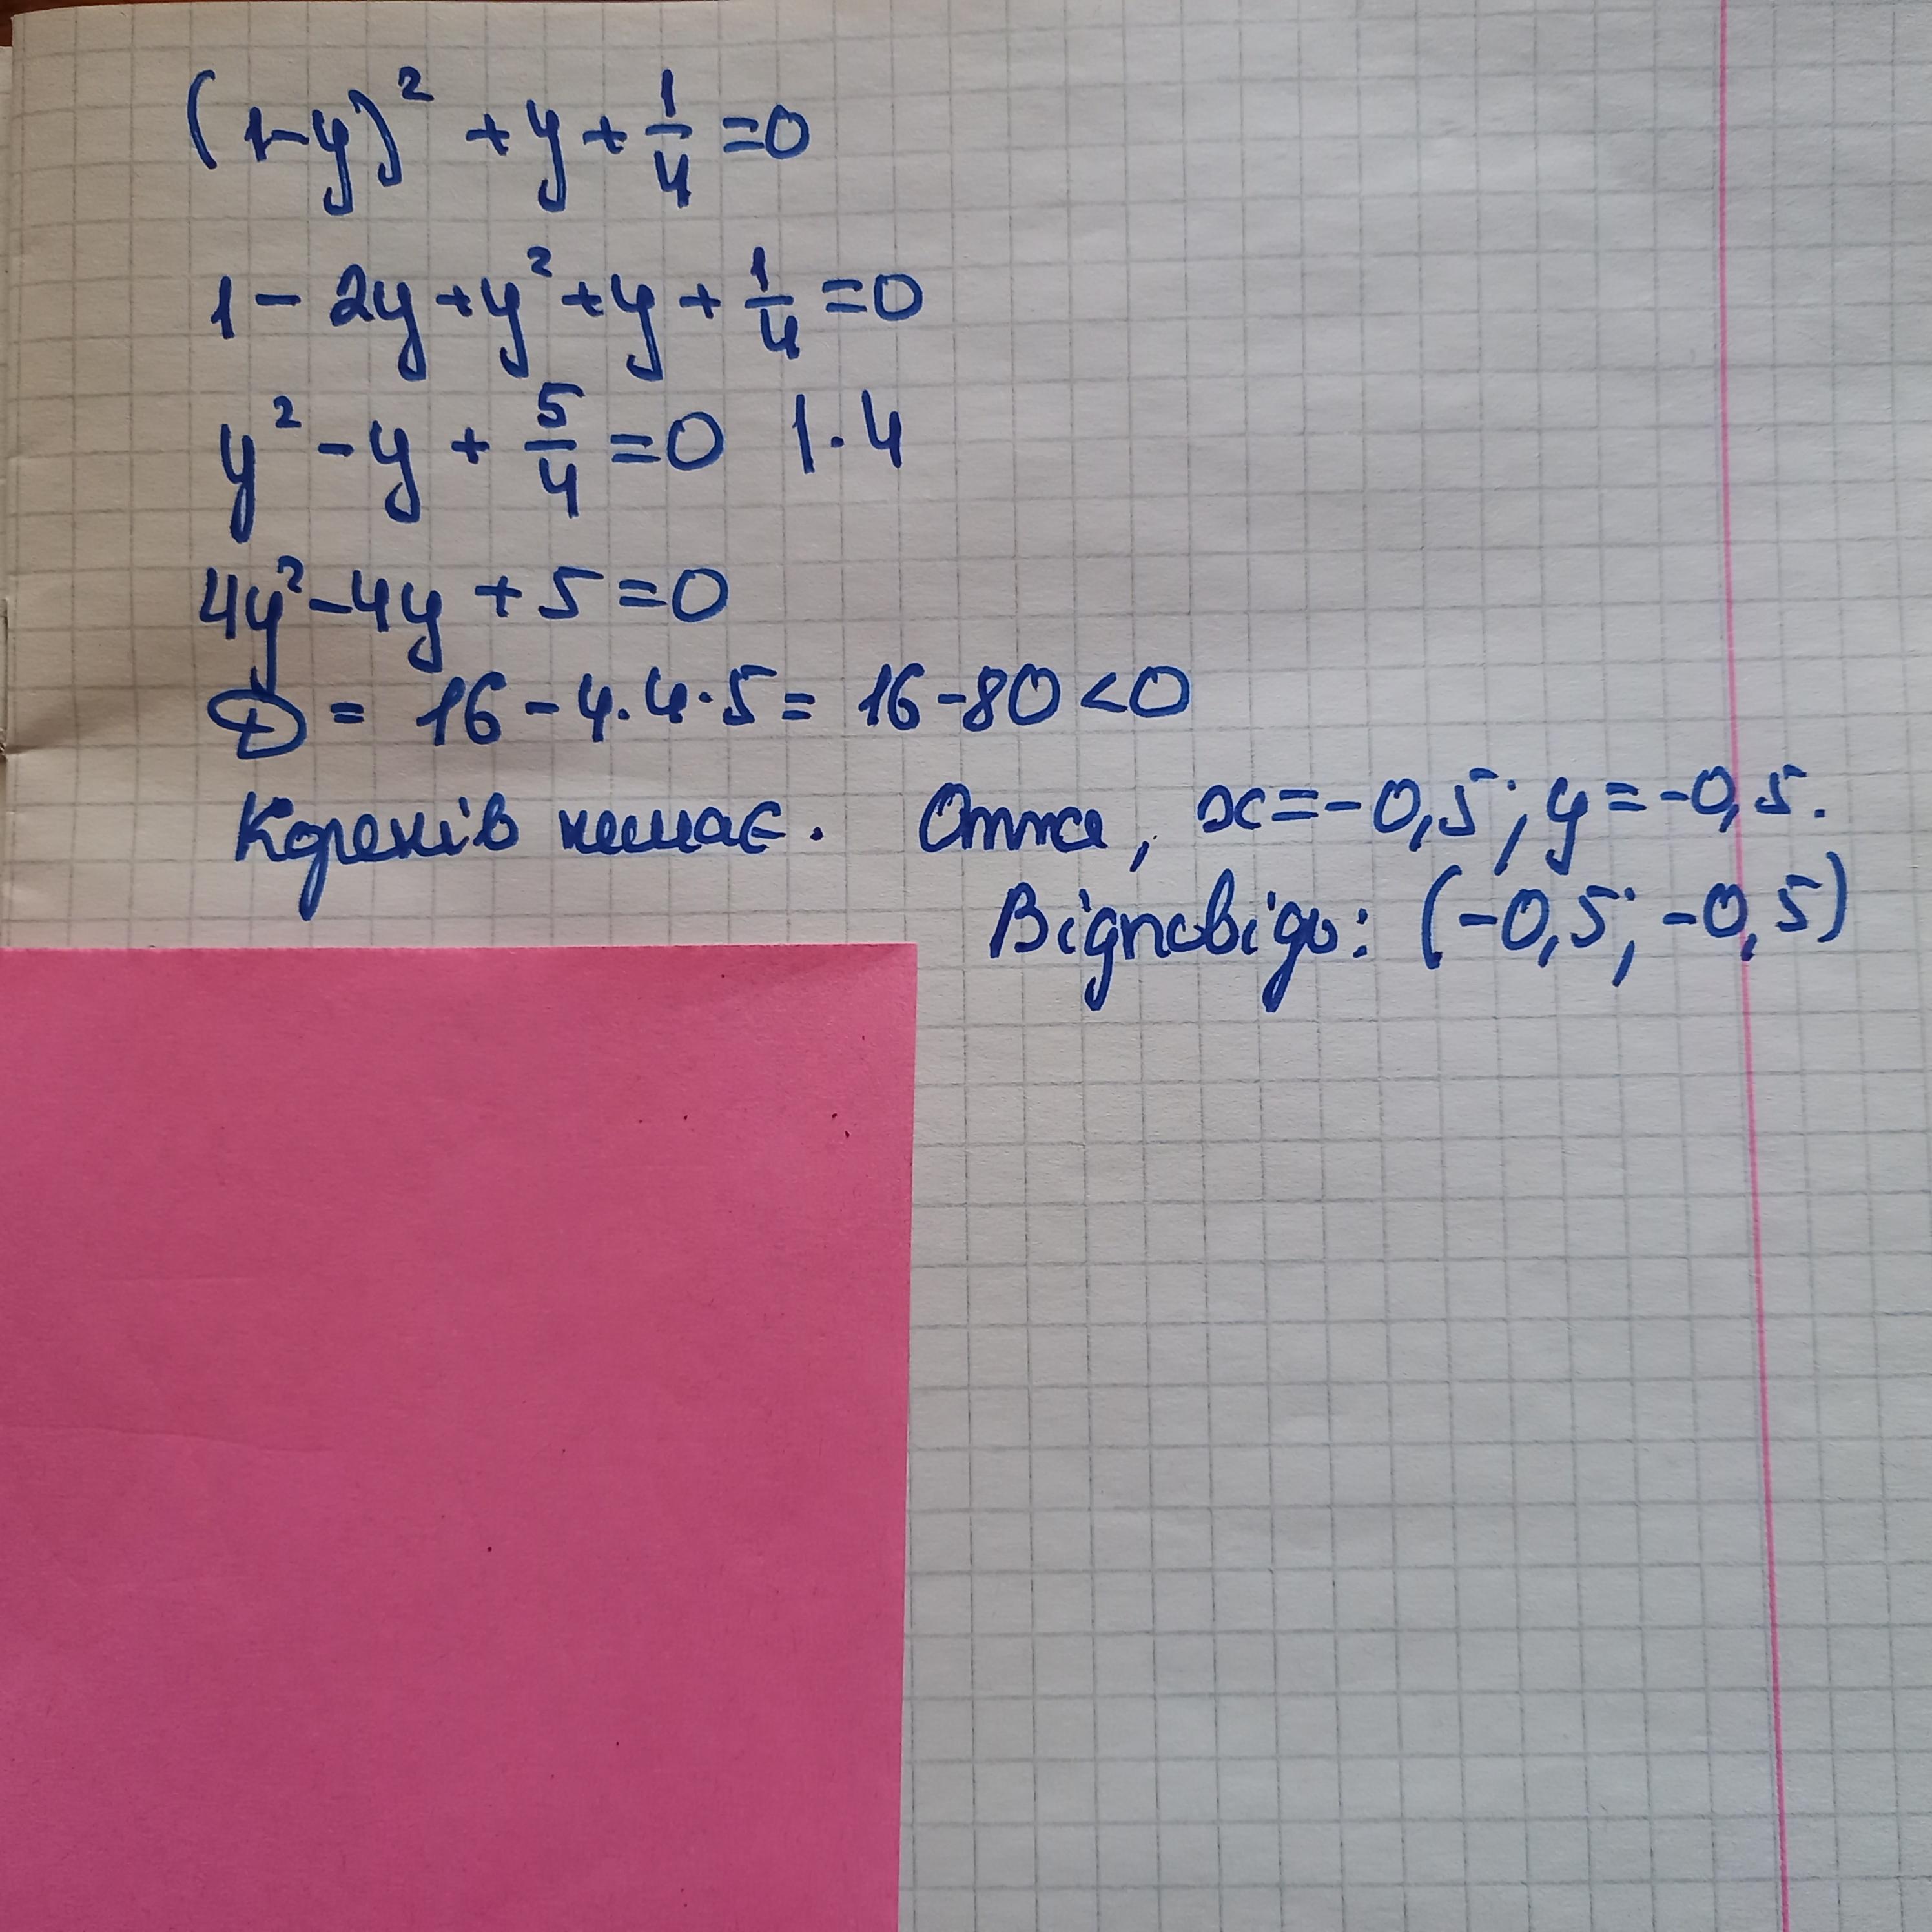 (1-y)² + y + 1/4 = 0
1 - 2y + y² + y + 1/4 = 0
y² - y + 5/4 = 0 | · 4
4y² - 4y + 5 = 0
D = 16 - 4·4·5 = 16 - 80 < 0
Коренів немає. Отже, x = -0,5; y = -0,5.
Відповідь: (-0,5; -0,5)